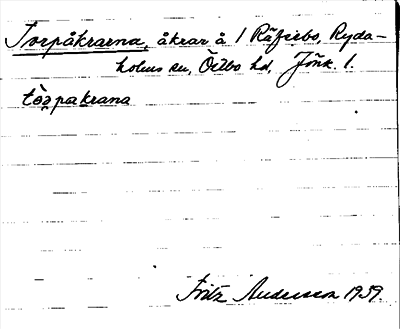 Torpåkrarna, åkrar å 1 Räfsebo, Ryda-
holms sn, Östbo hd, Jönk. l.
tòrpakrana
Fritz Andersson 1939.